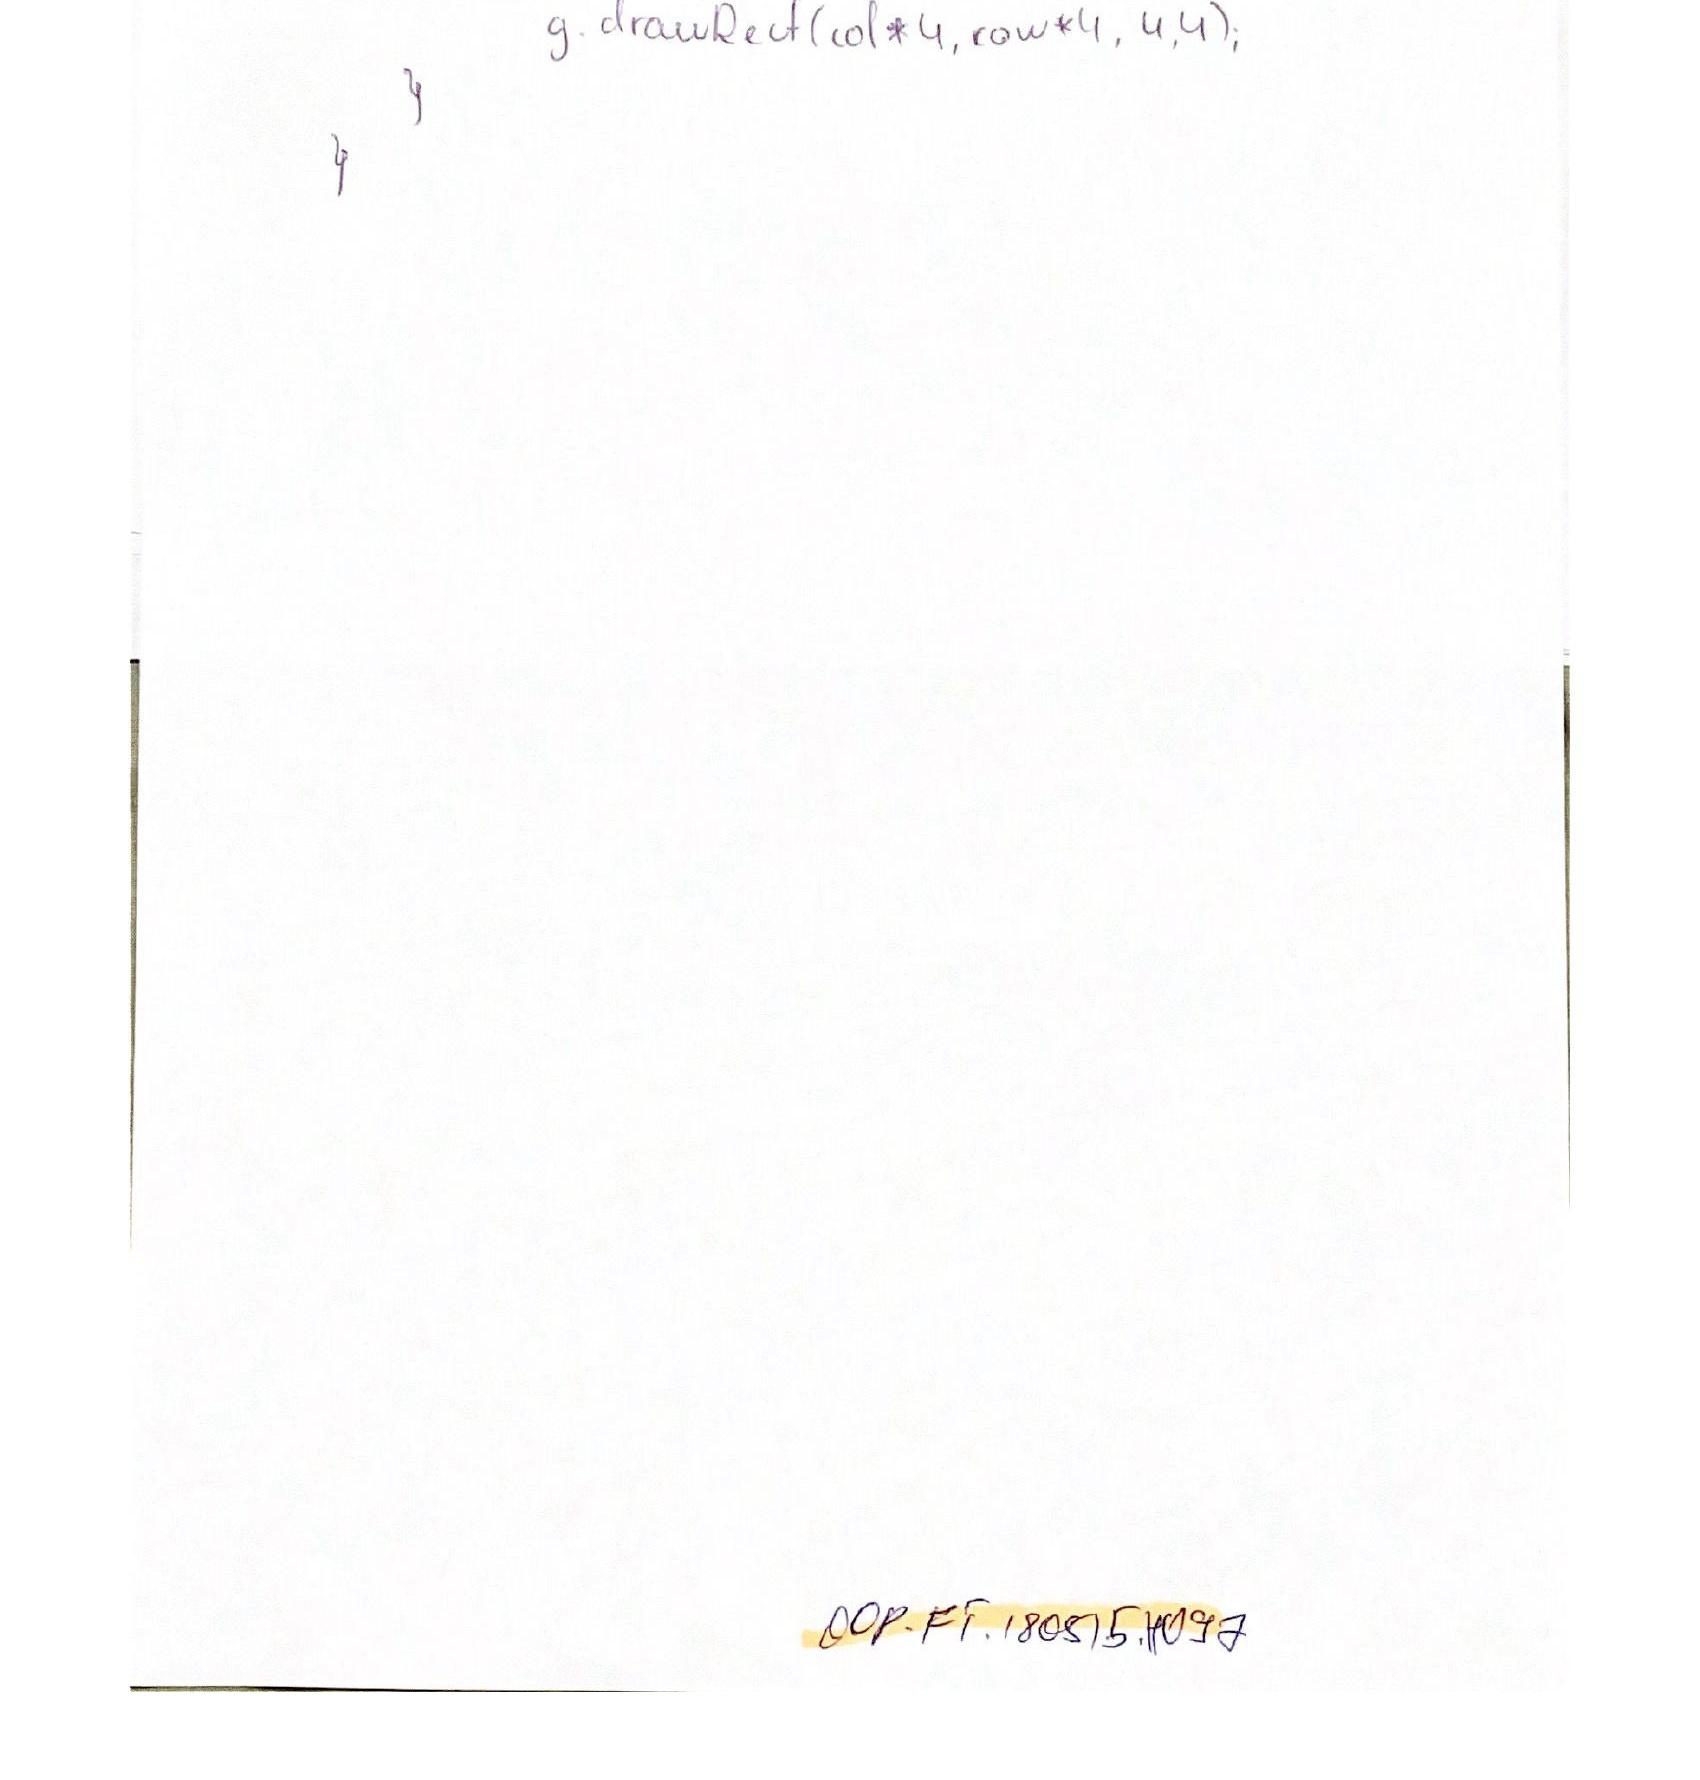 g.drawRect(col*4, row*4, 4,4);
}
}
OOP.FT.180515.H097